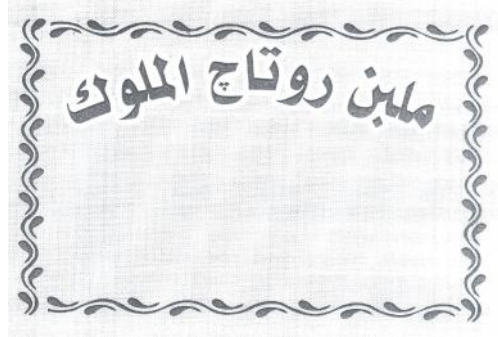 ملبن روتاچ الملوك